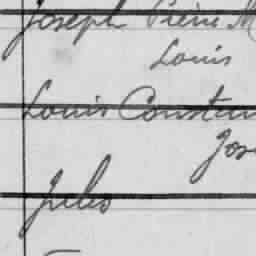 Joseph Pierre M
Louis
Louis Constan
Jos
Jules